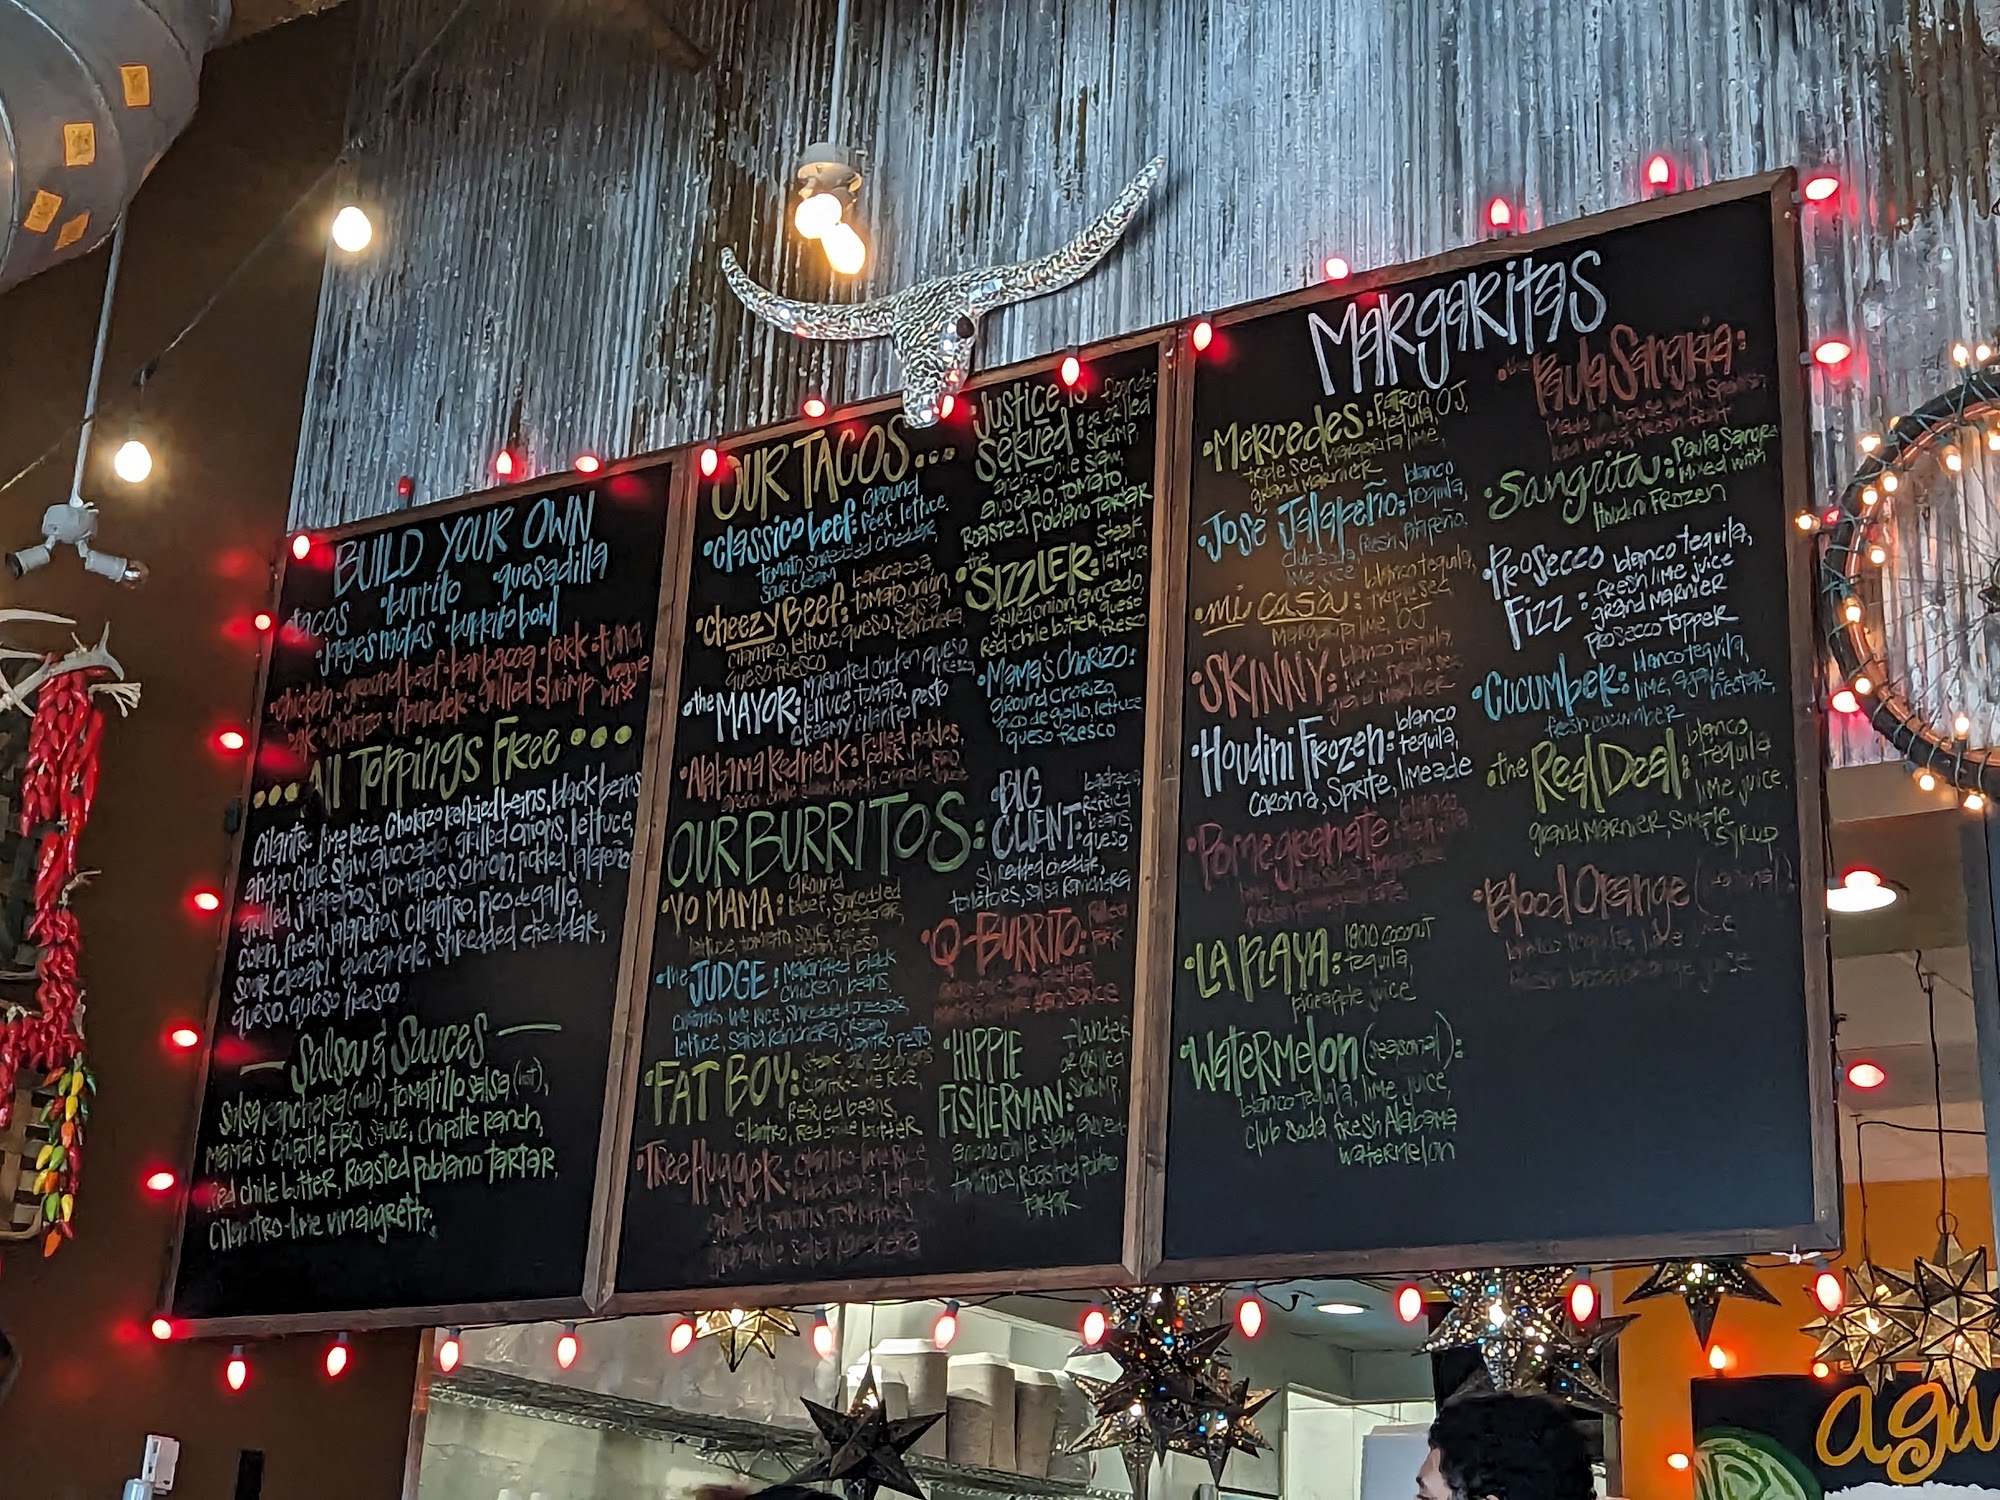 BUILD YOUR OWN
tacos •burrito •quesadilla
•burrito bowl
•chicken •ground beef •barbacoa •pork •tuna
•chorizo •flounder •grilled shrimp veggie
mix
•••All Toppings Free•••
cilantro lime rice, chorizo refried beans, black beans
ancho chile slaw, avocado, grilled onions, lettuce,
grilled jalapeños, tomatoes, onion, pickled jalapeño
corn, fresh jalapeños, cilantro, pico de gallo,
sour cream, guacamole, shredded cheddar,
queso, queso fresco
— Salsa & Sauces —
salsa ranchera (mild), tomatillo salsa (hot),
mama's chipotle BBQ sauce, chipotle ranch,
red chile butter, Roasted poblano tartar,
cilantro-lime vinaigrette
OUR TACOS...
•classico beef: ground
beef, lettuce,
tomato, shredded cheddar,
sour cream
•cheezy Beef: barbacoa,
tomato, onion,
cilantro, lettuce, queso, salsa
ranchera
queso fresco
•the MAYOR: marinated chicken, queso
lettuce, tomato,
creamy cilantro pesto
•Alabama Redneck: Pulled
pork pickles,
•Justice is
Served: flounder
or grilled
shrimp,
ancho chile slaw,
avocado, tomato,
Roasted poblano tartar
•the SIZZLER: steak,
lettuce
grilled onion, avocado,
queso
fresco
red chile butter,
•Mama's Chorizo:
ground chorizo,
pico de gallo, lettuce
queso fresco
OUR BURRITOS:
YO MAMA: ground
beef, shredded
cheddar,
lettuce, tomato, sour
cream, queso
•the JUDGE: Marinated black
chicken, beans,
cilantro lime rice, shredded cheddar,
lettuce, salsa ranchera, creamy
cilantro pesto
•FAT BOY: steak, grilled onions
cilantro-lime rice,
refried beans,
cilantro, red chile butter
•Tree Hugger: cilantro-lime rice
black beans, lettuce
grilled onions, tomatoes,
salsa ranchera
•BIG
CLIENT: barbacoa,
refried
beans,
queso,
shredded cheddar,
tomatoes, salsa ranchera
•Q-BURRITO: pulled
pork
•HIPPIE
FISHERMAN: flounder
or grilled
shrimp,
ancho chile slaw, avocado
tomatoes, Roasted poblano
tartar
MARGARITAS
•Mercedes: Patron
tequila, OJ,
triple sec, margarita lime,
grand marnier
•Jose Jalapeño: blanco
tequila,
club soda, fresh jalapeño,
lime juice
•mi casa: blanco tequila,
triple sec
Margarita lime, OJ
•SKINNY: blanco tequila,
lime, triple sec
grand marnier
•Houdini Frozen: blanco
tequila,
corona, Sprite, limeade
•Pomegranate
•LA PLAYA: 1800 coconut
tequila,
pineapple juice
•Watermelon (seasonal):
blanco tequila, lime juice,
club soda fresh Alabama
watermelon
•the Paula Sangria:
Made in house with Spanish
red wine & fresh fruit
•Sangrita: Paula Sangria
Mixed with
Houdini Frozen
•Prosecco
Fizz: blanco tequila,
fresh lime juice
grand marnier
prosecco topper
•Cucumber: blanco tequila,
lime, agave
nectar,
fresh cucumber
•the Real Deal: blanco
tequila
lime juice,
grand marnier, simple
syrup
•Blood Orange (seasonal)
blanco tequila, lime juice
fresh blood orange juice